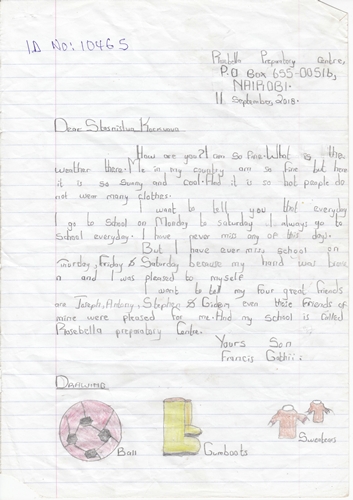 ID NO: 10465
Rosebella Preparatory Centre,
P.O Box 655-00516,
NAIROBI.
11 September, 2018.
Dear
How are you? I am so fine. What is the
weather there. Me in my country am so fine but here
it is so sunny and cool. And it is so hot people do
not wear many clothes.
I want to tell you that everyday
I go to school on Monday to saturday. I always go to
School everyday. I have never miss any of this days.
But I have ever miss school on
Friday & Saturday because my hand was broke
n and I was pleased to myself
I want to tell my four great friends
are Joseph, Antony, Stephen & Gideon even those friends of
mine were pleased for me. And my school is called
Rosebella preparatory Centre.
Yours Son
Francis
DRAWING
Ball
Gumboots
Sweaters